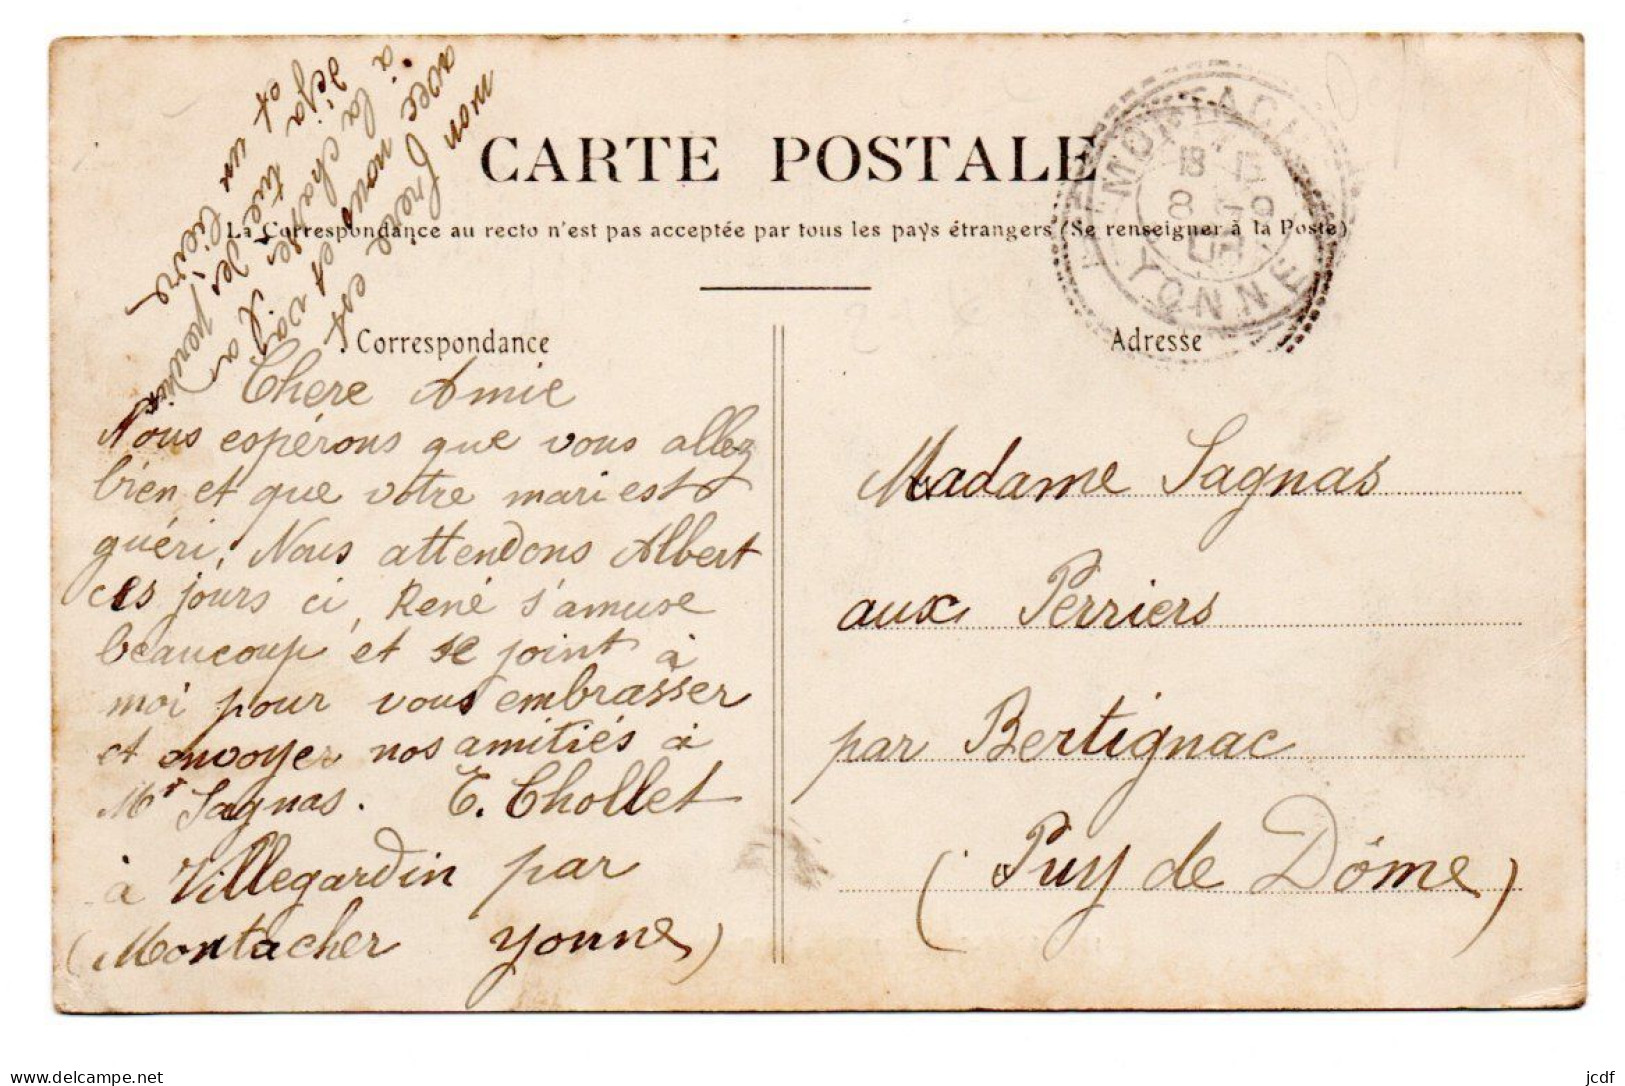 CARTE POSTALE
La Correspondance au recto n'est pas acceptée par tous les pays étrangers (Se renseigner à la Poste)
MONTACHER
18 15
8 9
08
YONNE
Correspondance
Chere Amie
Nous espérons que vous allez
bien et que votre mari est
guéri. Nous attendons Albert
ces jours ci, René s'amuse
beaucoup et se joint à
moi pour vous embrasser
et envoyer nos amitiés à
Mr Sagnas. E. Chollet
à Villegardin par
(Montacher Yonne)
mon frere est
avec nous et va
à la chasse il a
déja tué des perdrix
et un lievre
Adresse
Madame Sagnas
aux Perriers
par Bertignac
(Puy de Dôme)
delcampe.net
jcdf